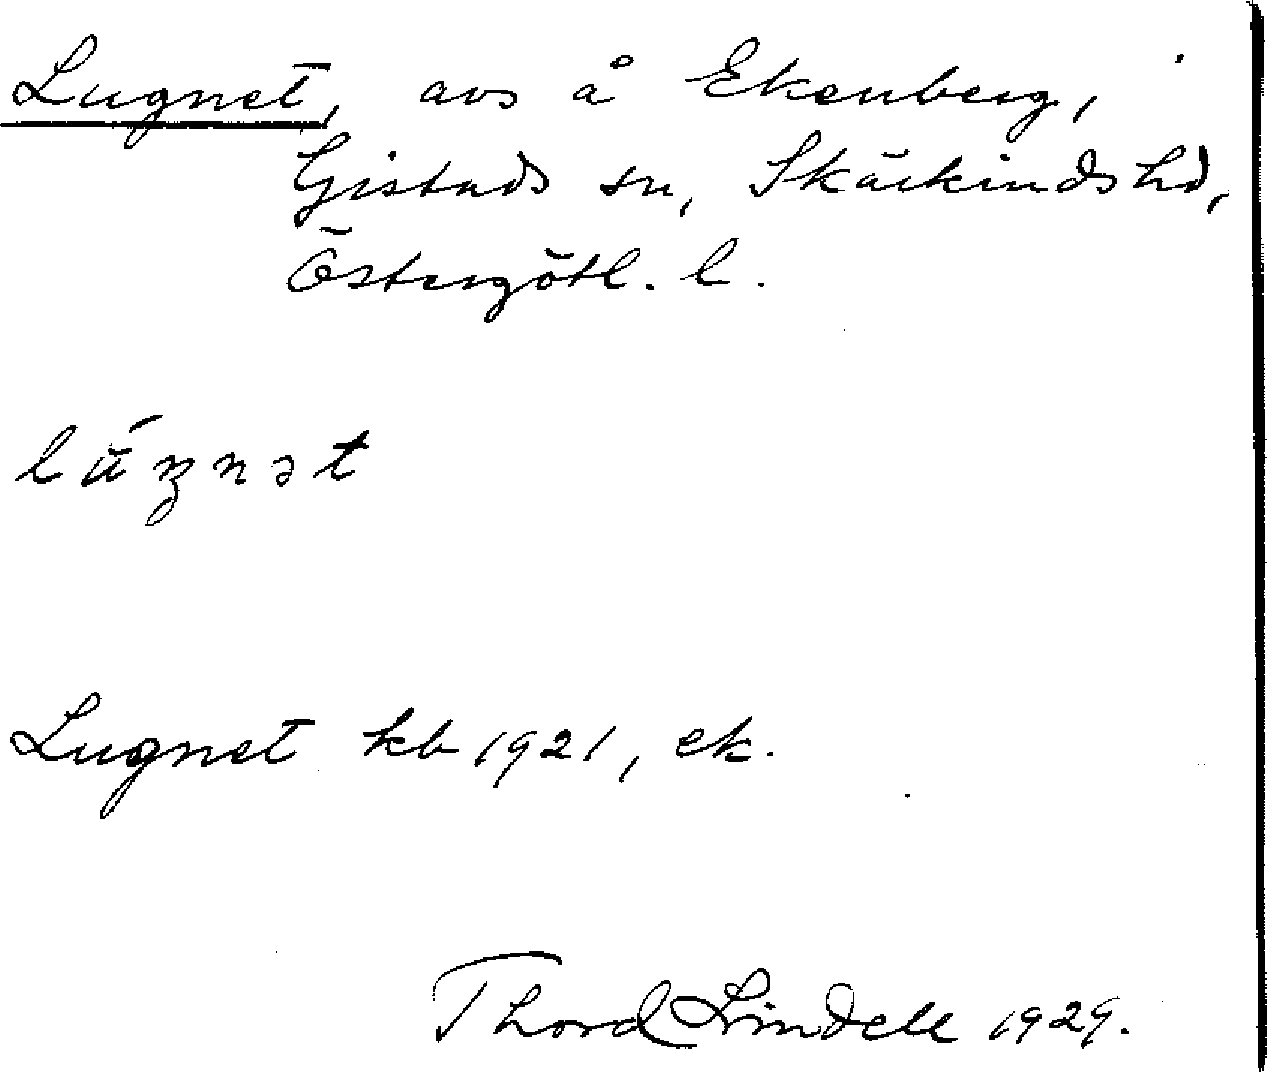 Lugnet, avs å Ekenberg,
Gistads sn, Skärkinds hd,
Östergötl. l.
Lugnet kb 1921, ek.
Thord Lindell 1929.